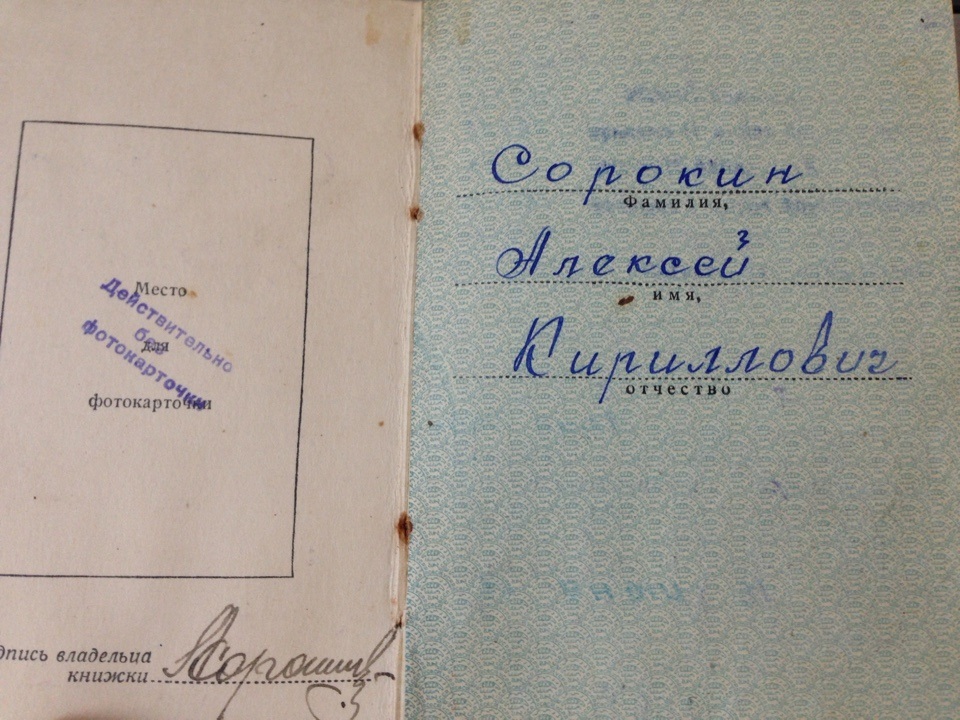 Место
для
фотокарточки
Действительно
без
фотокарточки
дпись владельца
книжки
Сорокин
Фамилия,
Алексей
имя,
Кириллович
отчество